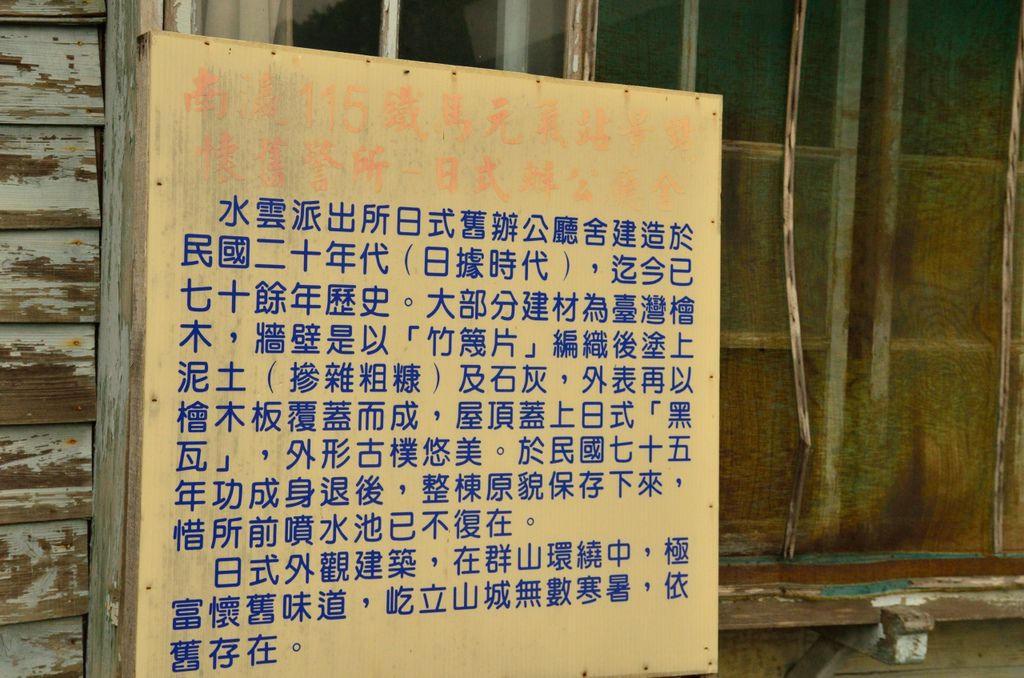 南瀛115鐵馬元氣站景點
懷舊警所-日式辦公廳舍
水雲派出所日式舊辦公廳舍建造於
民國二十年代（日據時代），迄今已
七十餘年歷史。大部分建材為臺灣檜
木，牆壁是以「竹篾片」編織後塗上
泥土（摻雜粗糠）及石灰，外表再以
檜木板覆蓋而成，屋頂蓋上日式「黑
瓦」，外形古樸悠美。於民國七十五
年功成身退後，整棟原貌保存下來，
惜所前噴水池已不復在。
日式外觀建築，在群山環繞中，極
富懷舊味道，屹立山城無數寒暑，依
舊存在。